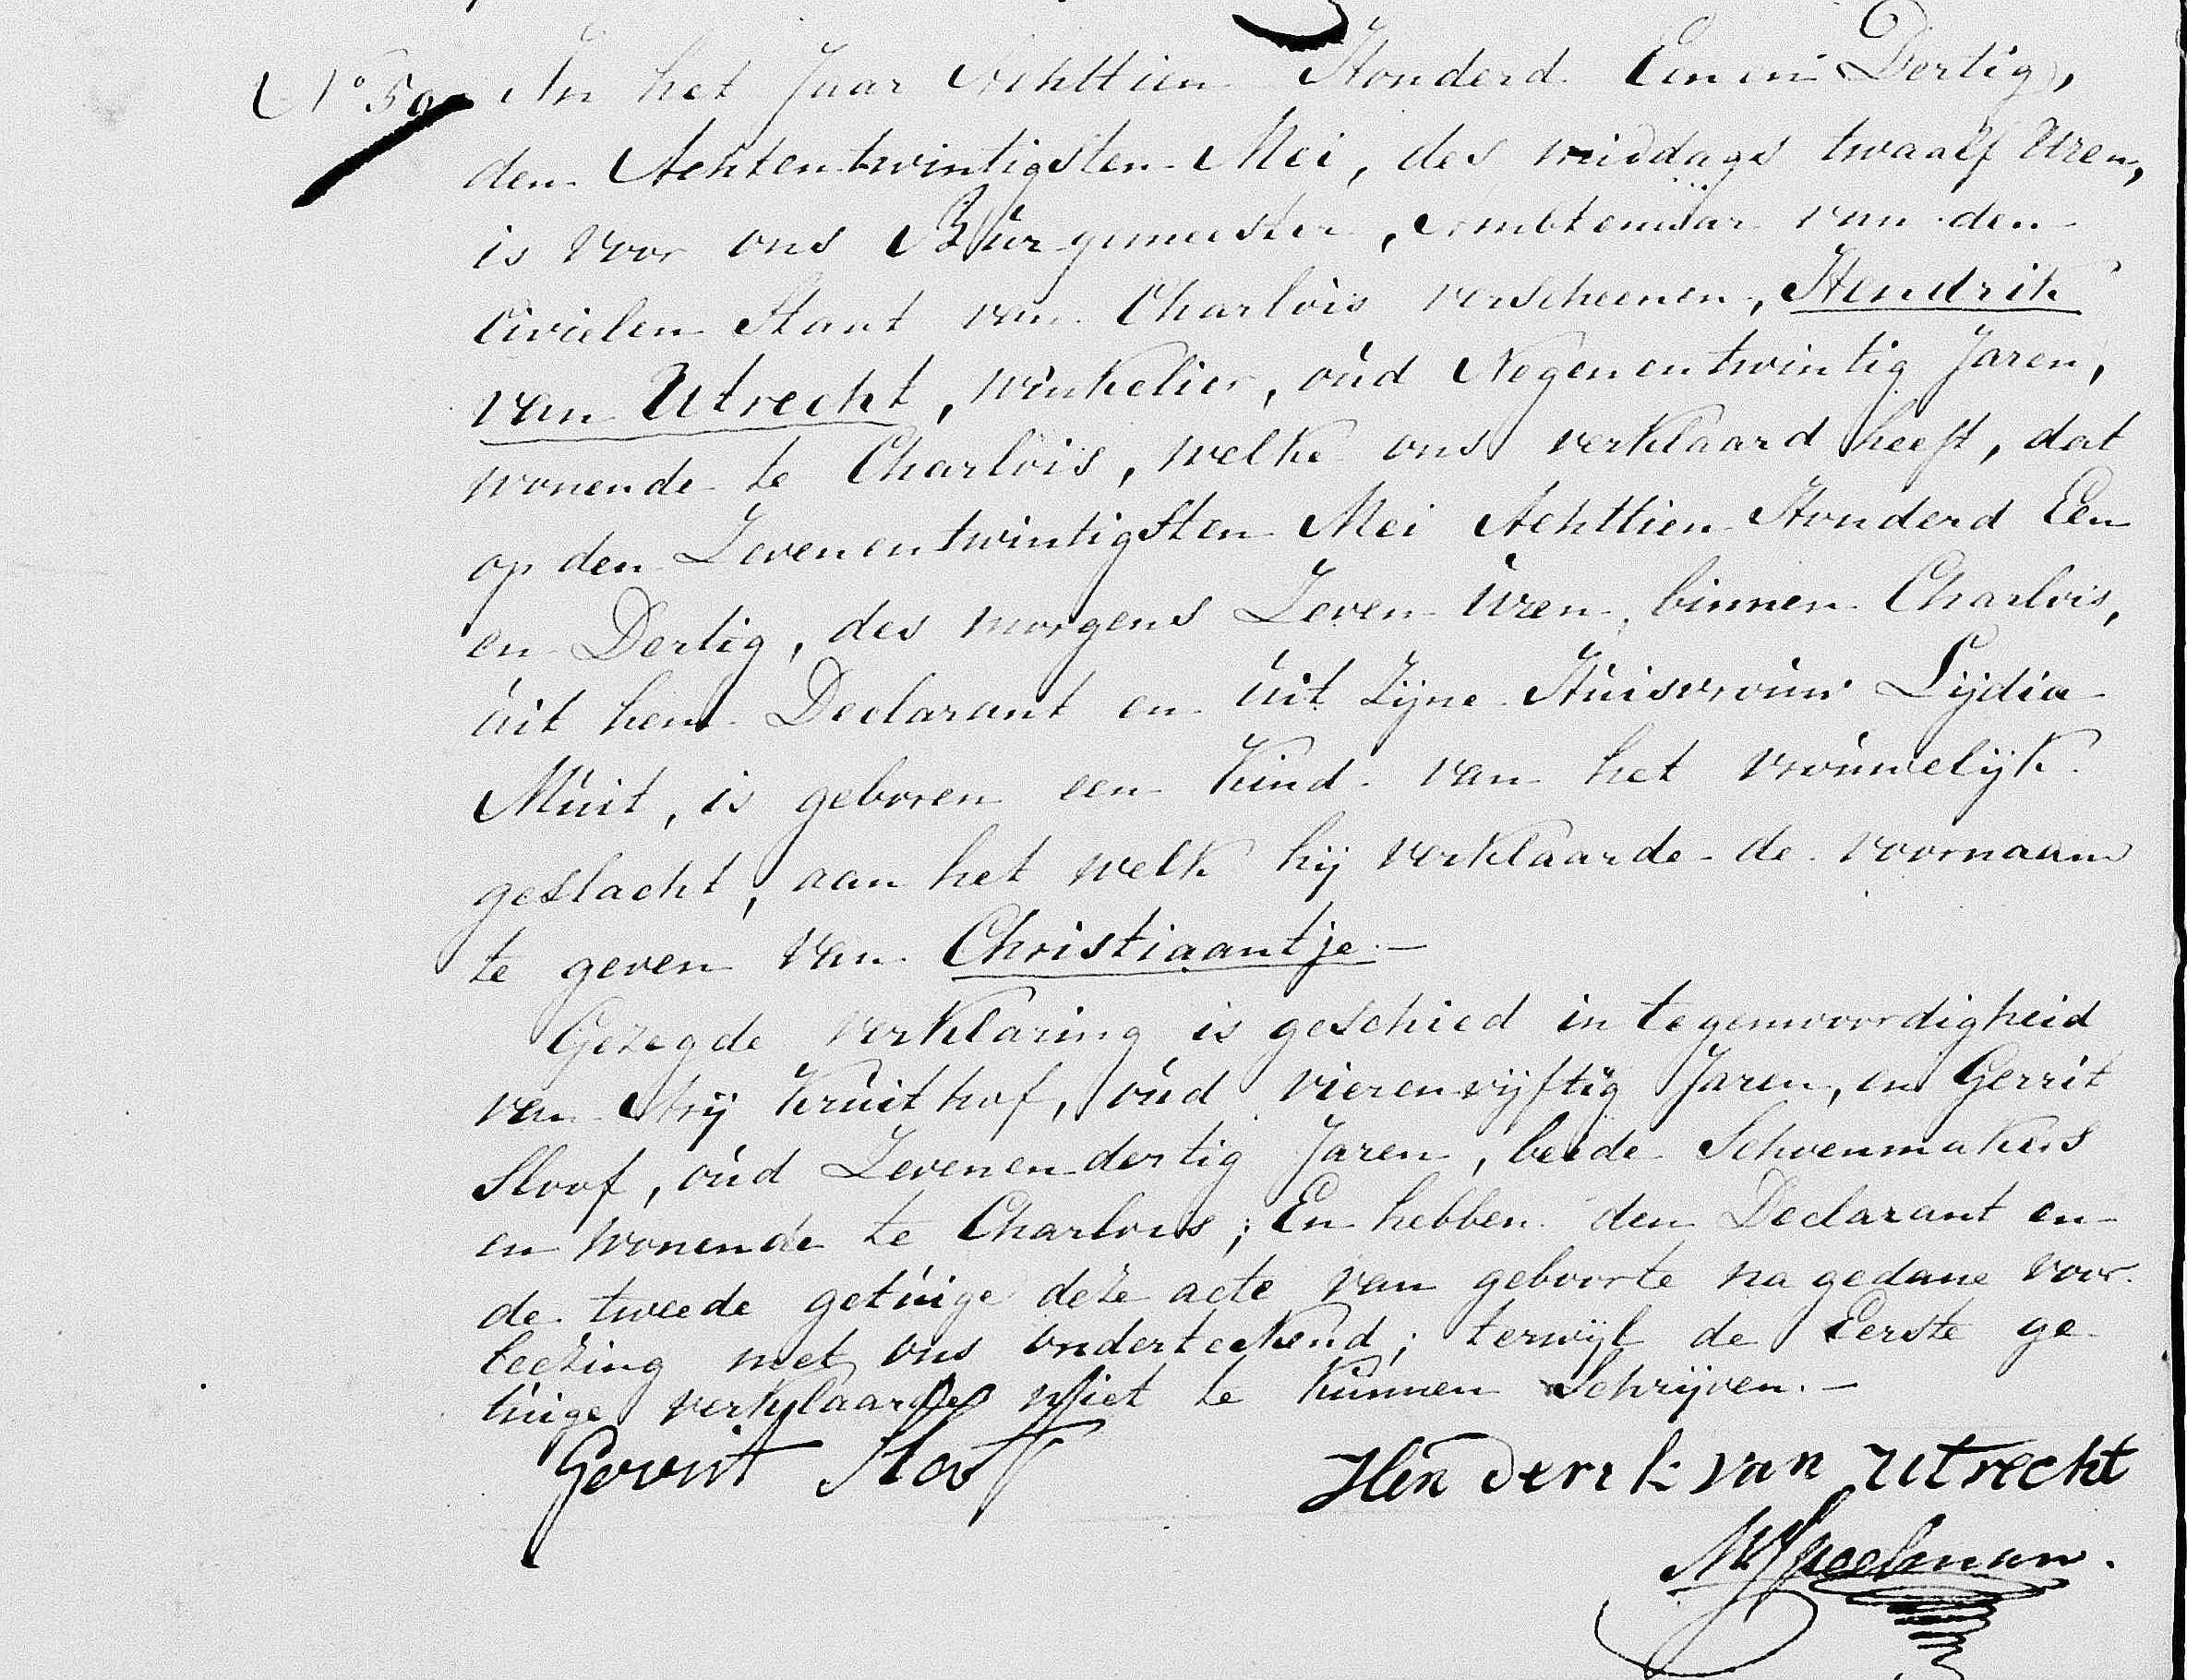 N° 59 In het Jaar Achttien Honderd Een en Dertig,
den Achtentwintigsten Mei, des middags twaalf Uren,
is voor ons Burgemeester, Ambtenaar van den
Civielen Stant van Charlois verscheenen, Hendrik
van Utrecht, winkelier, oud Negenentwintig Jaren,
wonende te Charlois, welke ons verklaard heeft, dat
op den Zevenentwintigsten Mei Achttien Honderd Een
en Dertig, des morgens Zeven uren, binnen Charlois,
uit hem Declarant en uit Zijne Huisvrouw Lijdia
Muit, is geboren een Kind van het vrouwelijk
geslacht, aan het welk hij verklaarde de voornaam
te geven van Christiaantje.—
Gezegde verklaring is geschied in tegenwoordigheid
van Arij Kruithof, oud vierenvijftig Jaren, en Gerrit
Sloof, oud Zevenendertig Jaren, beide Schoenmakers
en wonende te Charlois; En hebben den Declarant en
de tweede getuige deze acte van geboorte na gedane voor
leezing met ons onderteekend; terwijl de Eerste ge
tuige verklaarde niet te kunnen Schrijven.—
Gerrit Sloof Henderik van Utrecht
Spoelman.